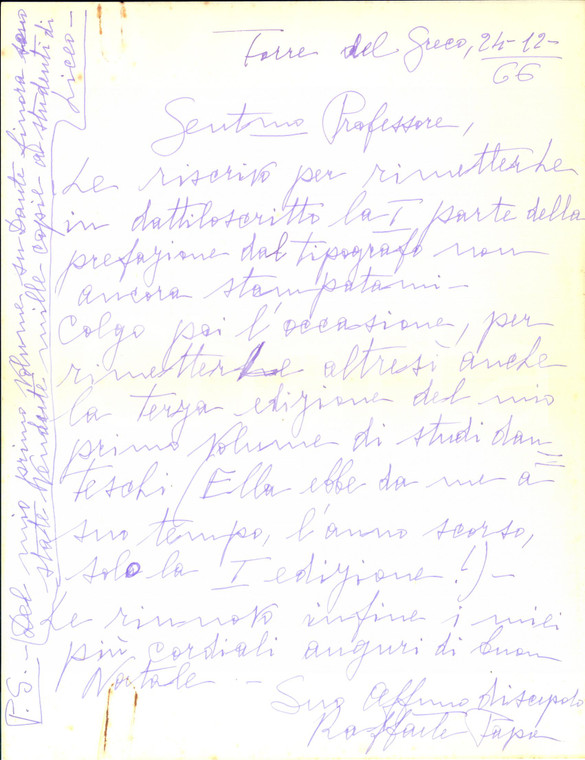 Torre del Greco, 24-12-
66
Gent.mo Professore,
Le riscrivo per rimetterLe
in dattiloscritto la I parte della
prefazione dal tipografo non
ancora stampatami -
Colgo poi l'occasione, per
rimetterLe altresì anche
la terza edizione del mio
primo volume di studi dan
teschi (Ella ebbe da me a
suo tempo, l'anno scorso,
solo la I edizione!) -
Le rinnovo infine i miei
più cordiali auguri di buon
Natale -
Suo Aff.mo discepolo
Raffaele Papa
P.S. - (Del mio primo volume su Dante finora sono
state vendute mille copie ad studenti di
Liceo -